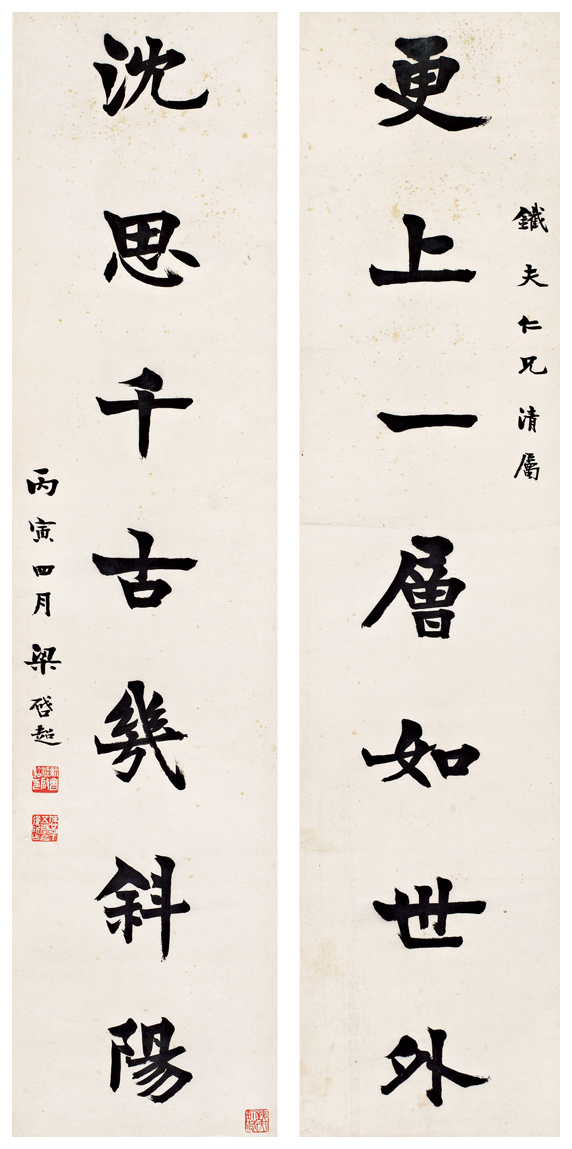 鐵夫仁兄清屬
更上一層如世外
沈思千古幾斜陽
丙寅四月梁啓超